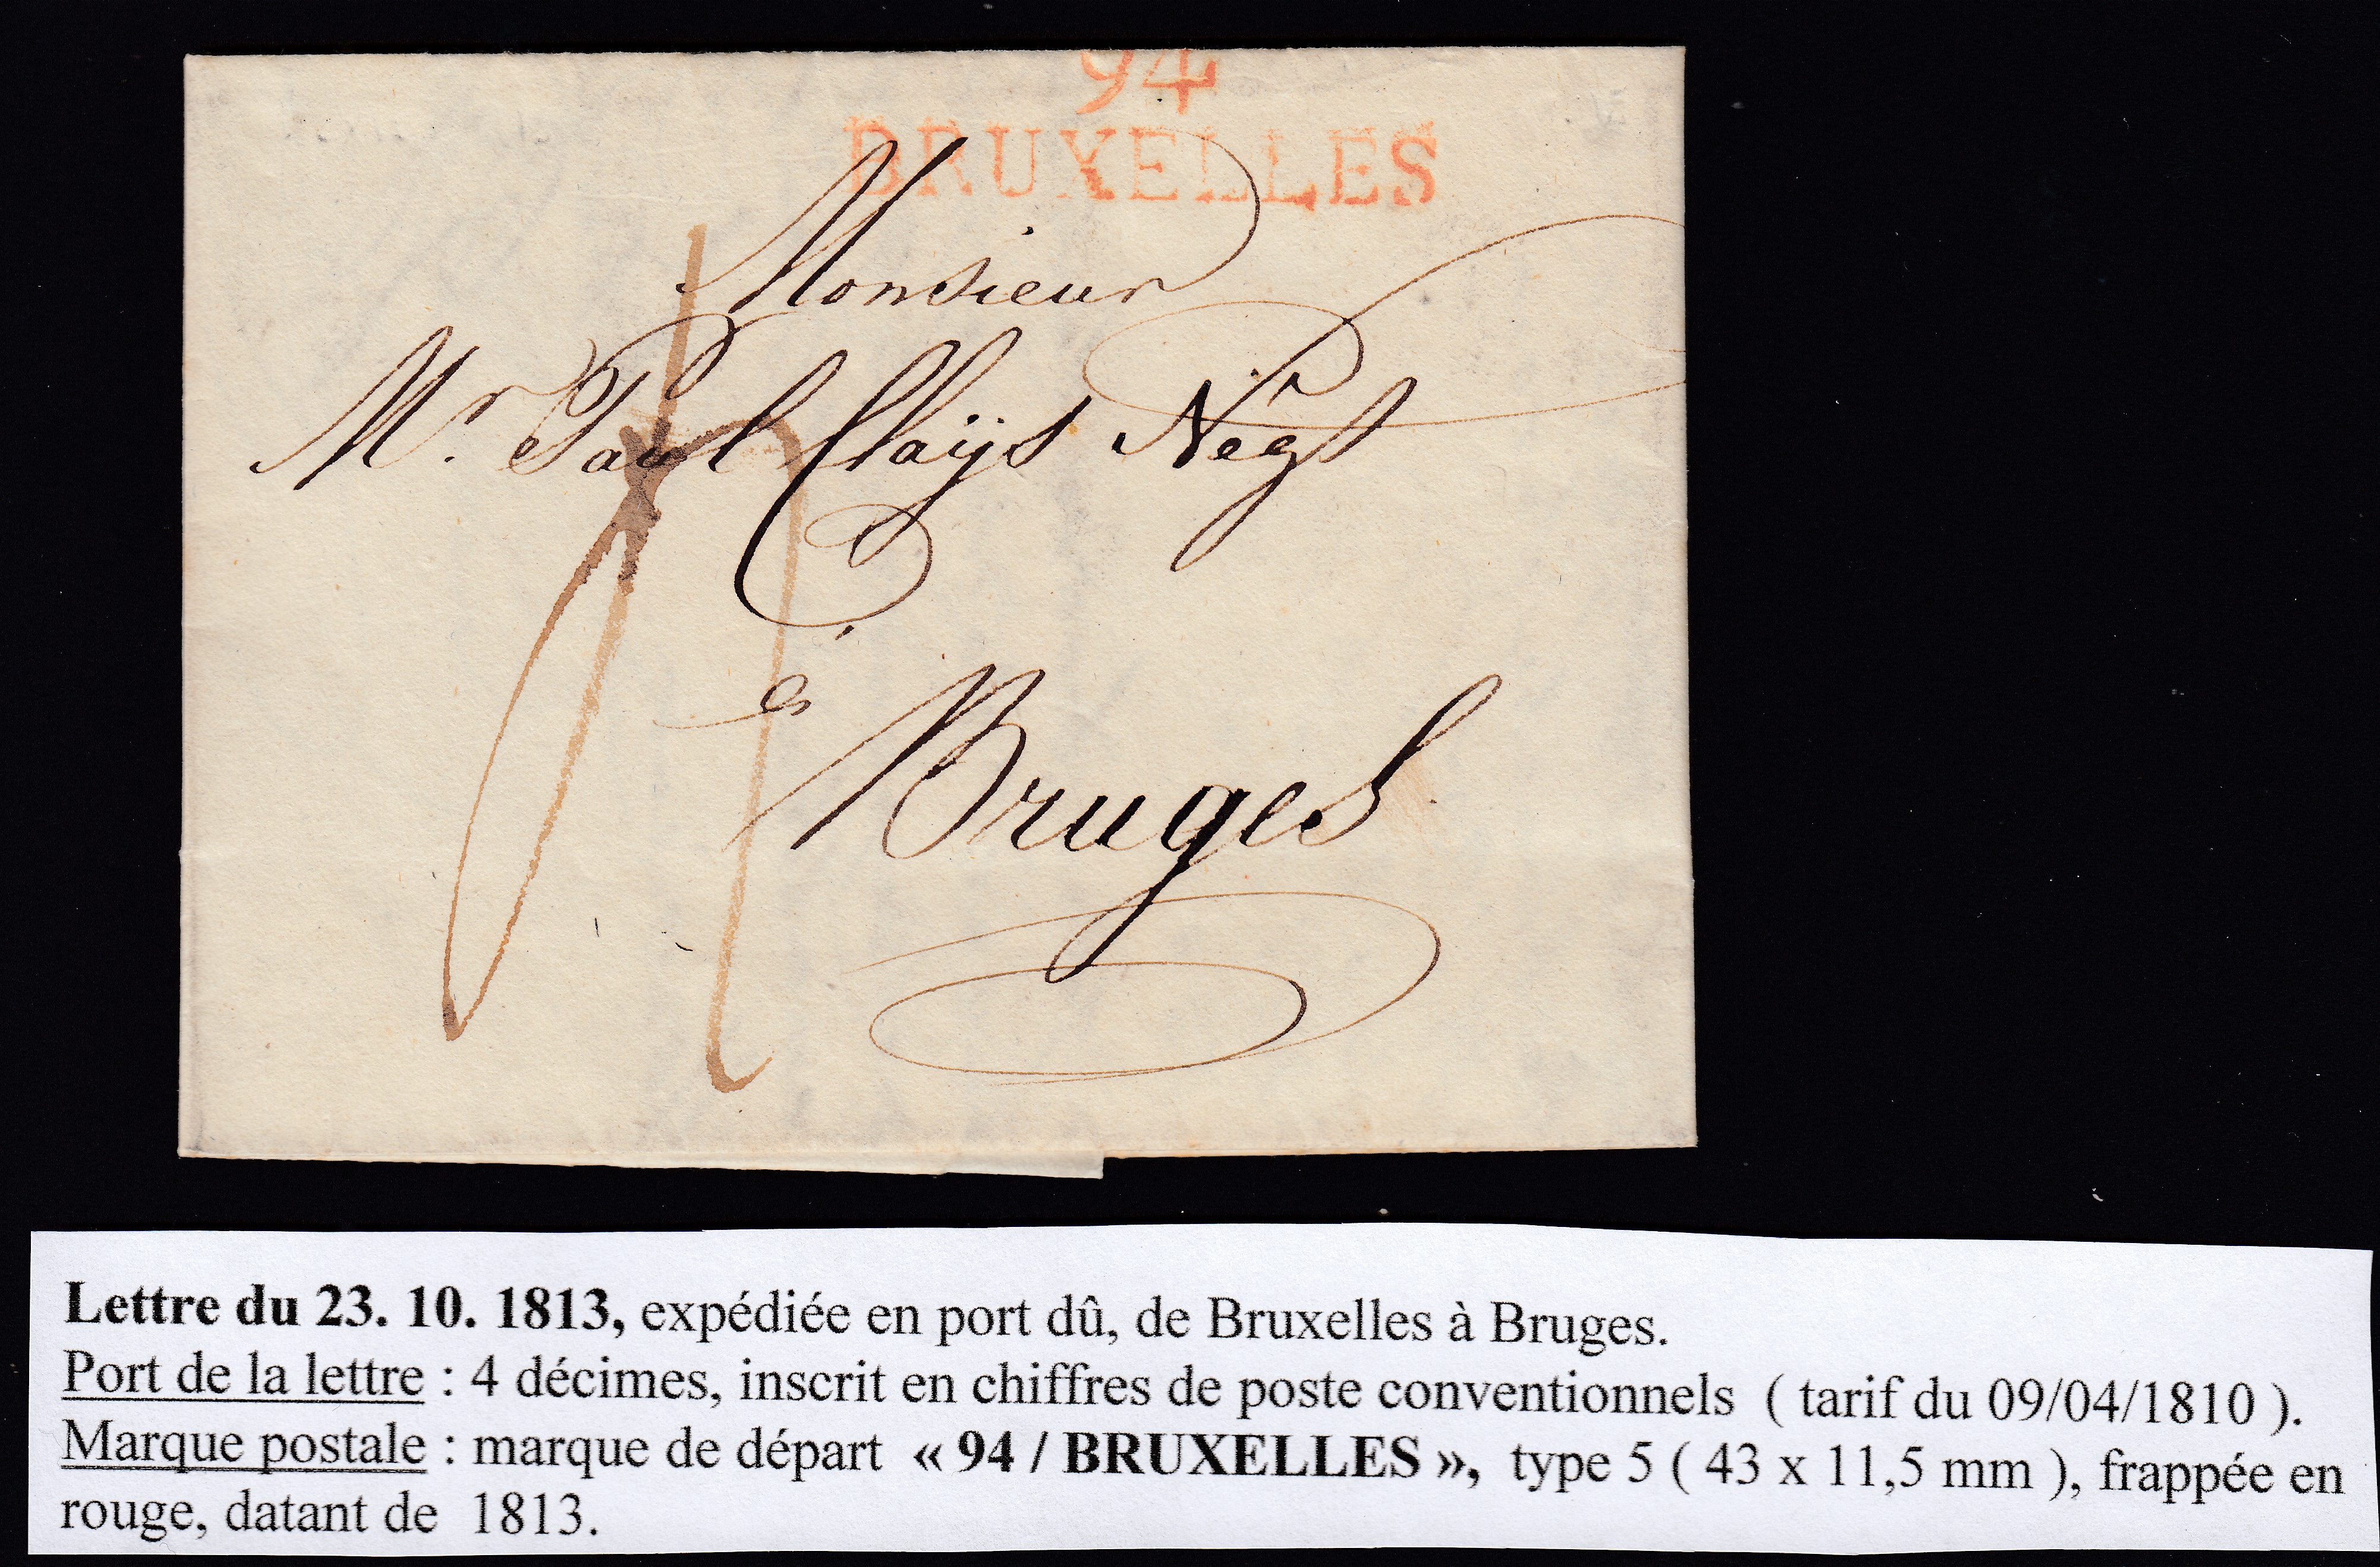 94
BRUXELLES
Monsieur
Mr. Paul Claÿs Negt
à
Bruges
Lettre du 23. 10. 1813, expédiée en port dû, de Bruxelles à Bruges.
Port de la lettre : 4 décimes, inscrit en chiffres de poste conventionnels ( tarif du 09/04/1810 ).
Marque postale : marque de départ « 94 / BRUXELLES », type 5 ( 43 x 11,5 mm ), frappée en
rouge, datant de 1813.